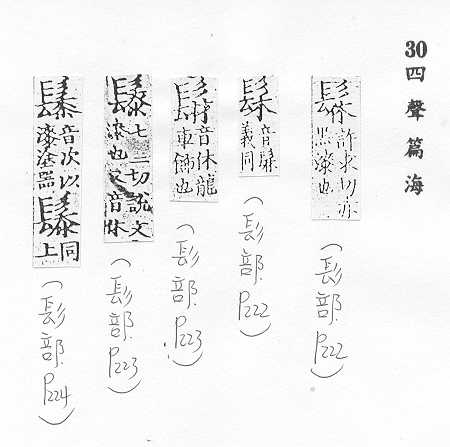 30 四聲篇海
髹 許求切亦
黑漆也
(髟部 P222)
髤 音髹
義同
(髟部 P222)
音休龍
車飾也
(髟部 P223)
䰍 七二切說文
漆也又音休
(髟部 P223)
音次以
漆塗器
同
上
(髟部 P224)